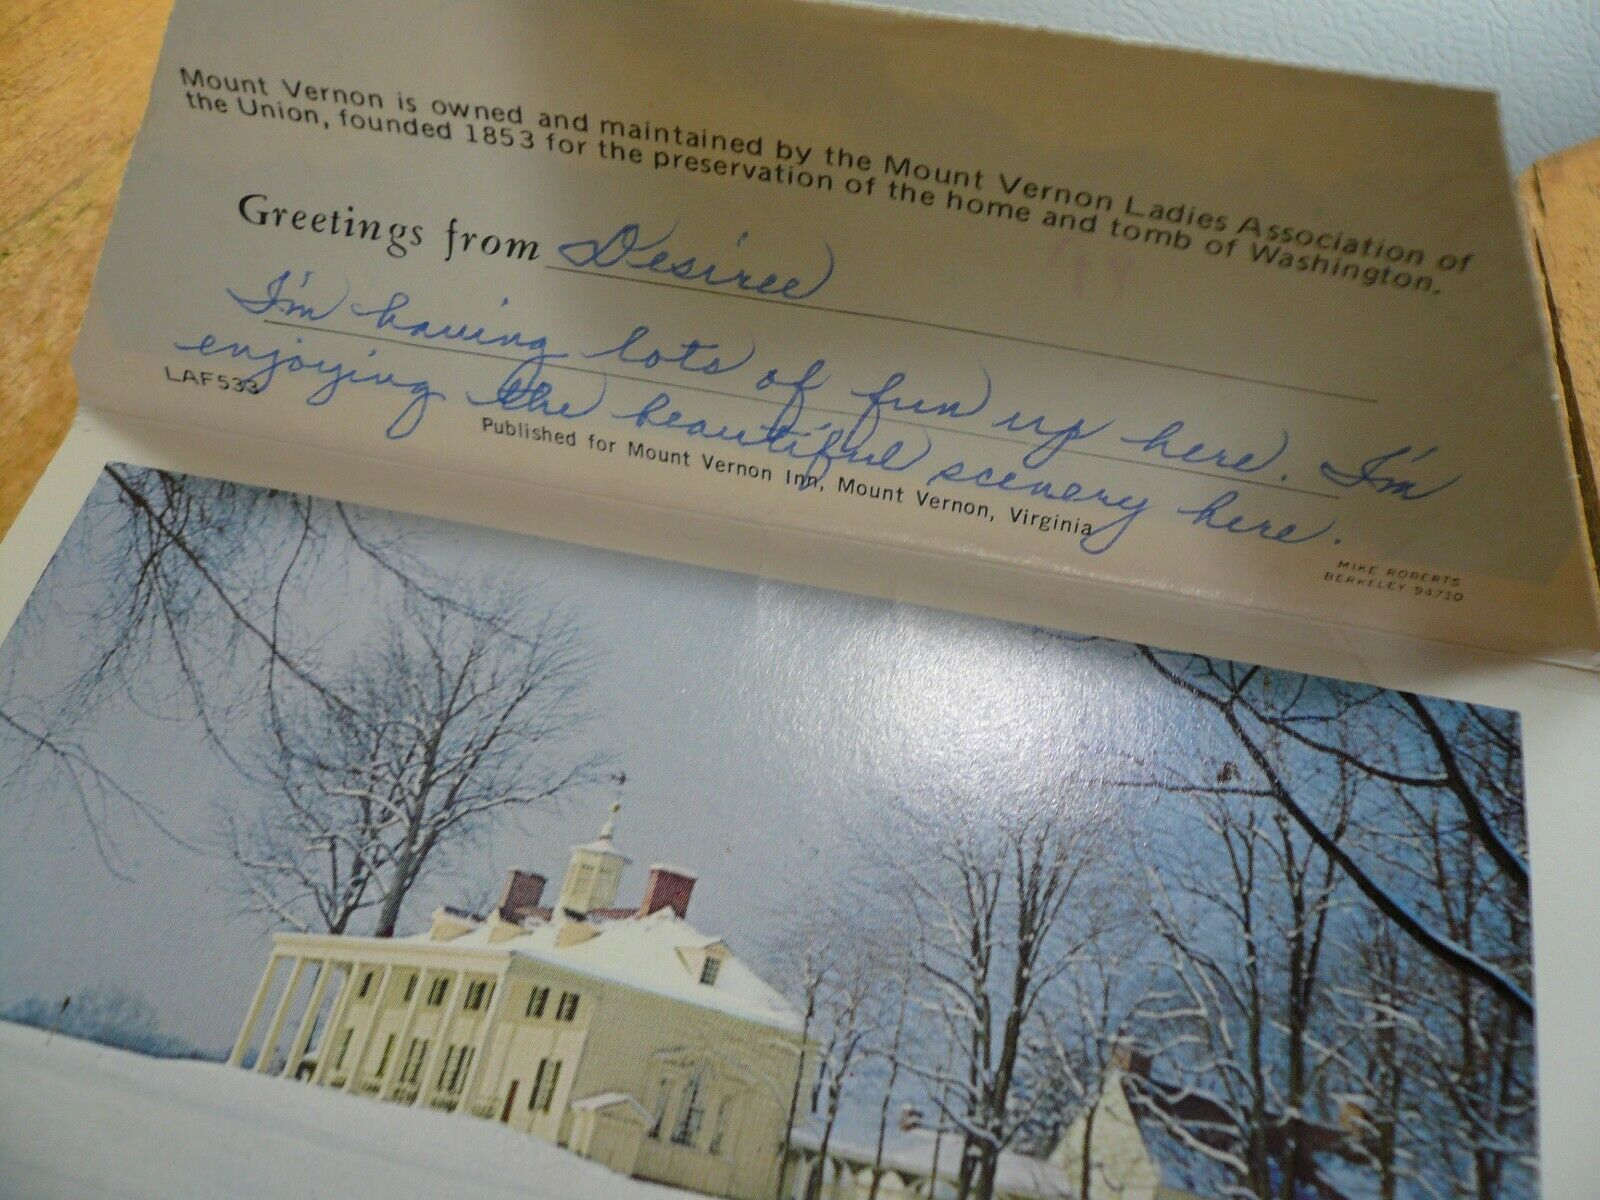 Mount Vernon is owned and maintained by the Mount Vernon Ladies Association of
the Union, founded 1853 for the preservation of the home and tomb of Washington.
Greetings from Desiree
I'm having lots of fun up here. I'm
enjoying the beautiful scenery here.
LAF533
Published for Mount Vernon Inn, Mount Vernon, Virginia
MIKE ROBERTS
BERKELEY 94710